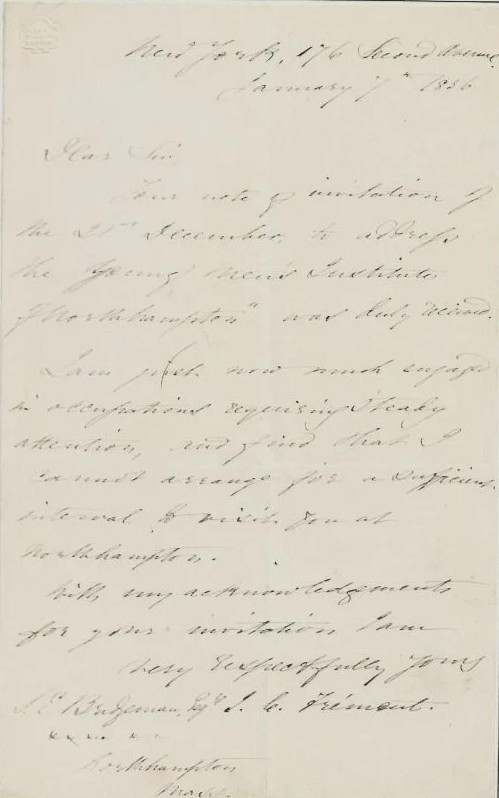 New York, 176 Second Avenue,
January 7th 1856
Dear Sir
Your note of invitation of
the 21st December, to address
the "Young Men's Institute
of Northhampton" was duly received.
I am just now much engaged
in occupations requiring steady
attention, and find that I
cannot arrange for a sufficient
interval to visit you at
Northhampton.
With my acknowledgments
for your invitation I am
very respectfully yours
J. C. Frémont.
S. E. Bridgeman, Esqr.
Northhampton
Mass.